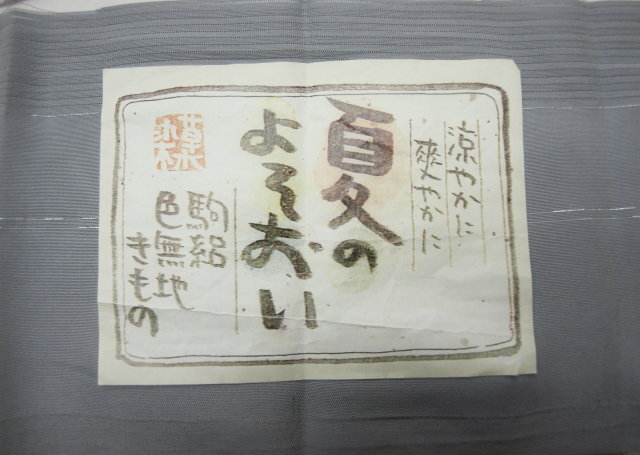 涼やかに
爽やかに
夏の
よそおい
駒絽
色無地
きもの